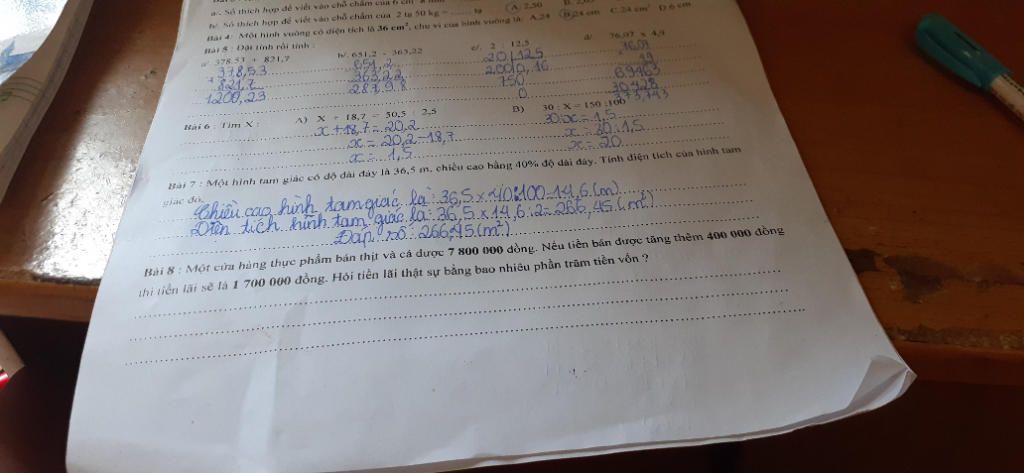 a/. Số thích hợp để viết vào chỗ chấm của 6 cm² 8 mm² A. 2,50
b/. Số thích hợp để viết vào chỗ chấm của 2 tạ 50 kg = ........ tạ
Bài 4: Một hình vuông có diện tích là 36 cm², chu vi của hình vuông là: A.24 B.24 cm C.24 cm² D.6 cm
Bài 5 : Đặt tính rồi tính :
a/ 378,53 + 821,7 b/. 651,2 - 363,22 c/. 2 : 12,5 d/ 76,07 x 4,9
378,53 651,2 20 12,5
+ 821,7 363,22 200 0,16 69463
1200,23 287,98 750 30428
0 373,743
Bài 6 : Tìm X : A) X + 18,7 = 50,5 : 2,5 B) 30 : X = 150 : 100
x + 18,7 = 20,2 30 : x = 1,5
x = 20,2 - 18,7 x = 30 : 1,5
x = 1,5 x = 20
Bài 7 : Một hình tam giác có độ dài đáy là 36,5 m, chiều cao bằng 40% độ dài đáy. Tính diện tích của hình tam
giác đó.
Chiều cao hình tam giác là : 36,5 x 40 : 100 = 14,6 (m)
Diện tích hình tam giác là : 36,5 x 14,6 : 2 = 266,45 (m²)
Đáp số : 266,45 (m²)
Bài 8 : Một cửa hàng thực phẩm bán thịt và cá được 7 800 000 đồng. Nếu tiền bán được tăng thêm 400 000 đồng
thì tiền lãi sẽ là 1 700 000 đồng. Hỏi tiền lãi thật sự bằng bao nhiêu phần trăm tiền vốn ?